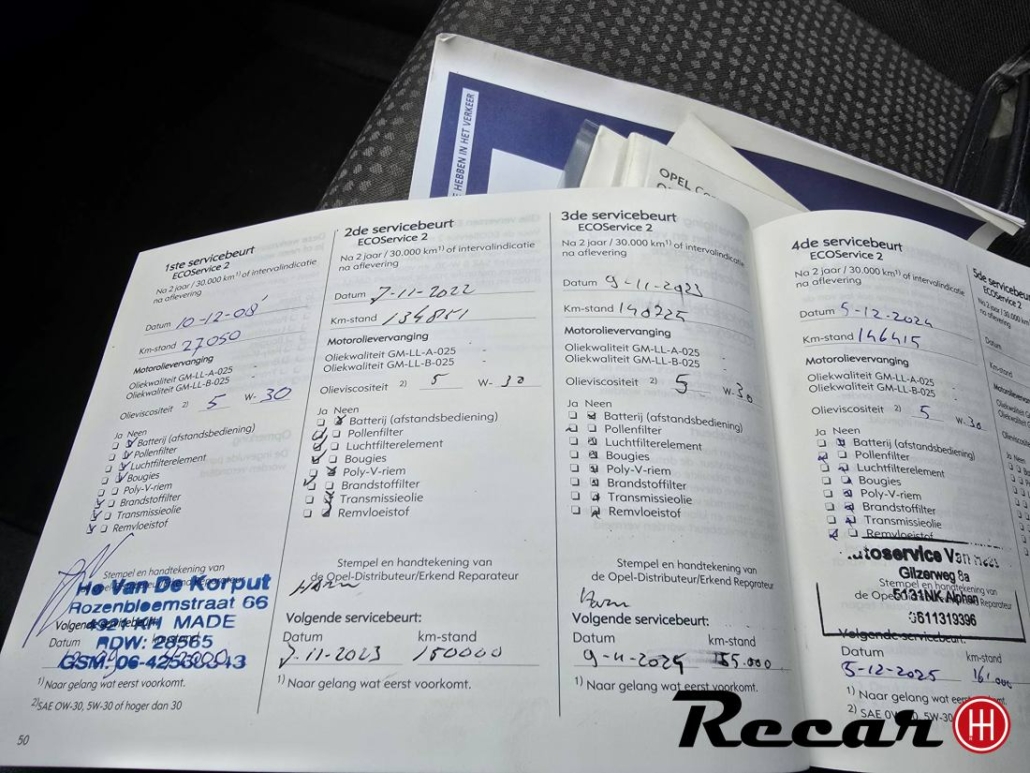 HEBBEN IN HET VERKEER
OPEL
1ste servicebeurt
ECOService 2
Na 2 jaar / 30.000 km¹⁾ of intervalindicatie
na aflevering
Datum 10-12-08
Km-stand 27050
Motorolievervanging
Oliekwaliteit GM-LL-A-025
Oliekwaliteit GM-LL-B-025
Olieviscositeit 2) 5 W- 30
Ja Neen
Batterij (afstandsbediening)
Pollenfilter
Luchtfilterelement
Bougies
Poly-V-riem
Brandstoffilter
Transmissieolie
Remvloeistof
Stempel en handtekening van
de Opel-Distributeur/Erkend Reparateur
Ho Van De Korput
Rozenbloemstraat 66
4921 AH MADE
RDW: 28565
Volgende servicebeurt:
Datum
1) Naar gelang wat eerst voorkomt.
2) SAE 0W-30, 5W-30 of hoger dan 30
50
2de servicebeurt
ECOService 2
Na 2 jaar / 30.000 km¹⁾ of intervalindicatie
na aflevering
Datum 7-11-2022
Km-stand 134851
Motorolievervanging
Oliekwaliteit GM-LL-A-025
Oliekwaliteit GM-LL-B-025
Olieviscositeit 2) 5 W- 30
Ja Neen
Batterij (afstandsbediening)
Pollenfilter
Luchtfilterelement
Bougies
Poly-V-riem
Brandstoffilter
Transmissieolie
Remvloeistof
Stempel en handtekening van
de Opel-Distributeur/Erkend Reparateur
Volgende servicebeurt:
Datum km-stand
7-11-2023 150000
1) Naar gelang wat eerst voorkomt.
3de servicebeurt
ECOService 2
Na 2 jaar / 30.000 km¹⁾ of intervalindicatie
na aflevering
Datum 9-11-2023
Km-stand 140225
Motorolievervanging
Oliekwaliteit GM-LL-A-025
Oliekwaliteit GM-LL-B-025
Olieviscositeit 2) 5 W- 30
Ja Neen
Batterij (afstandsbediening)
Pollenfilter
Luchtfilterelement
Bougies
Poly-V-riem
Brandstoffilter
Transmissieolie
Remvloeistof
Stempel en handtekening van
de Opel-Distributeur/Erkend Reparateur
Volgende servicebeurt:
Datum km-stand
9-11-2024 155.000
1) Naar gelang wat eerst voorkomt.
4de servicebeurt
ECOService 2
Na 2 jaar / 30.000 km¹⁾ of intervalindicatie
na aflevering
Datum 5-12-2024
Km-stand 146415
Motorolievervanging
Oliekwaliteit GM-LL-A-025
Oliekwaliteit GM-LL-B-025
Olieviscositeit 2) 5 W- 30
Ja Neen
Batterij (afstandsbediening)
Pollenfilter
Luchtfilterelement
Bougies
Poly-V-riem
Brandstoffilter
Transmissieolie
Remvloeistof
Autoservice Van
Gilzerweg 8a
Stempel en handtekening van
5131NK Alphen
0611319396
Volgende servicebeurt:
Datum km-stand
5-12-2025 161.000
1) Naar gelang wat eerst
2) SAE 0W-30, 5W-30
5de servicebeurt
Datum
Km-stand
Recar